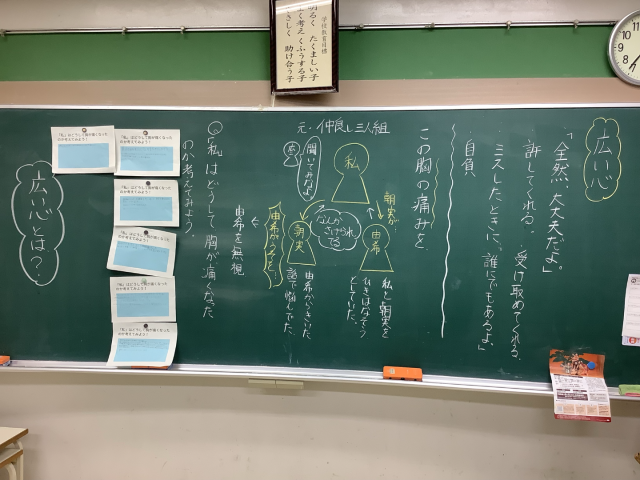 学校教育目標
明るく たくましい子
よく考え くふうする子
やさしく 助け合う子
広い心
「全然、大丈夫だよ」。
許してくれる。 受け取めてくれる。
ミスしたときに、「誰にでもあるよ」
自負
この胸の痛みを
元・仲良し三人組
私
朝実が
由希
私と朝実を
ひきはなそう
としていた。
なんか
さけられ
てる
聞いてみなよ
朝実
由希がいきいた
話で悩んでた。
由希がうそを
◎「私」はどうして胸が痛くなった
のか考えてみよう。
由希を無視
「私」はどうして胸が痛くなった
のか考えてみよう!
「私」はどうして胸が痛くなった
のか考えてみよう!
「私」はどうして胸が痛くなった
のか考えてみよう!
「私」はどうして胸が痛くなった
のか考えてみよう!
「私」はどうして胸が痛くなった
のか考えてみよう!
「私」はどうして胸が痛くなった
のか考えてみよう!
広い心とは?